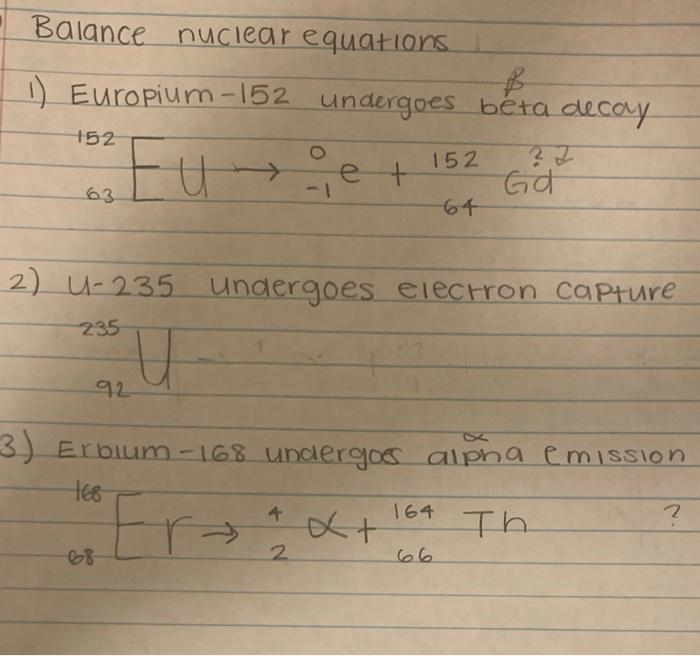 Balance nuclear equations
1) Europium-152 undergoes beta decay
β
152 63 Eu → 0 -1 e + 152 64 Gd ?
2) U-235 undergoes electron capture
235 92 U
3) Erbium-168 undergoes alpha emission
α
168 68 Er → 4 2 α + 164 66 Th ?